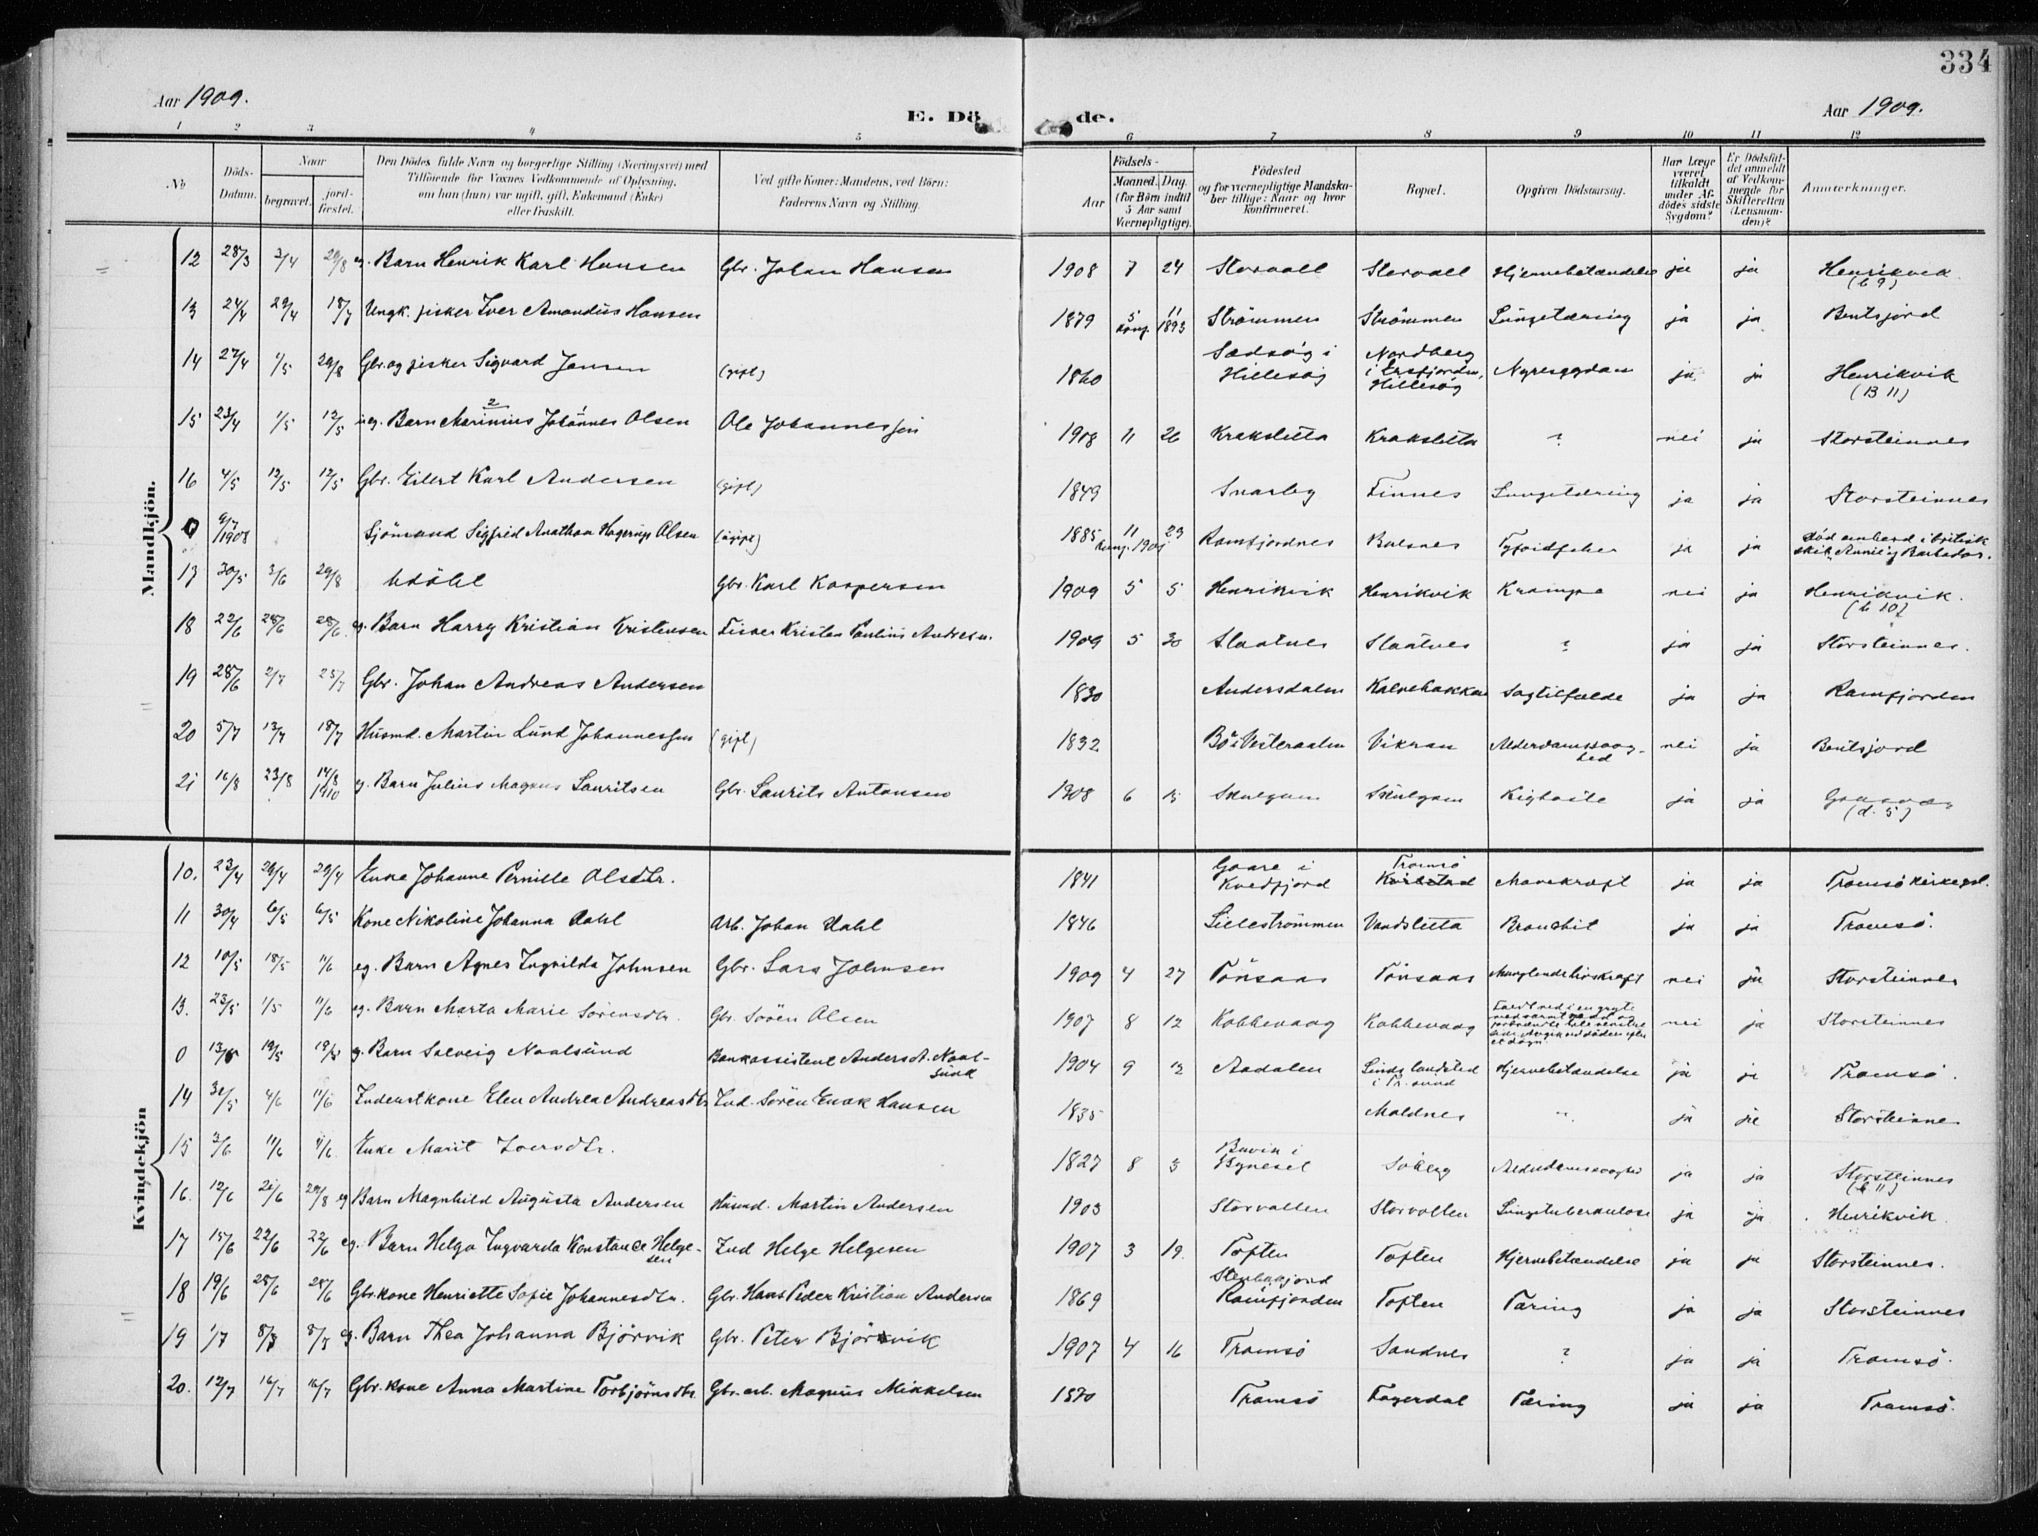 334
Aar 1909.
E. Dö de.
Aar 1909.
1 2 3 4 5 6 7 8 9 10 11 12
No
Döds-Datum.
Naar
begravet.
jord-fæstet.
Den Dödes fulde Navn og borgerlige Stilling (Næringsvei) med
Tilföiende for Voxnes Vedkommende af Oplysning,
om han (hun) var ugift, gift, Enkemand (Enke)
eller fraskilt.
Ved gifte Koner: Mandens, ved Börn:
Faderens Navn og Stilling.
Födsels-
Aar
Maaned. Dag.
(for Börn indtil
5 Aar samt
Værnepligtige).
Födested
og for værnepligtige Mandska-
ber tillige: Naar og hvor
konfirmeret.
Bopæl.
Opgiven Dödsaarsag.
Har Læge
været
tilkaldt
under Af-
dödes sidste
Sygdom?
Er Dödsfal-
det anmeldt
af Vedkom-
mende for
Skifteretten
(Lensman-
den)?
Anmærkninger.
Mandkjön.
12 28/3 2/4 29/8 eg. Barn Henrik Karl Hansen Gbr. Johan Hansen 1908 7 24 Storvoll Storvoll Hjernebetændelse ja ja Henrikvik (b 9)
13 24/4 29/4 18/7 Ungk. fisker Iver Amandus Hansen 1879 5 11 konf. 1893 Strømmen Strømmen Lungetæring ja ja Bentsjord
14 27/4 1/5 29/8 Gbr. og fisker Sigvard Jensen (gift) 1860 Sædsøg i Hillesøy Nordberg i Ersfjorden, Hillesøy Nyresygdom ja ja Henrikvik (B 11)
15 23/4 1/5 12/5 ueg. Barn Marinius 2 Johannes 1 Olsen Ole Johannessen 1908 11 26 Kraksletta Kraksletta ? nei ja Storsteinnes
16 4/5 12/5 12/5 Gbr. Eilert Karl Andersen (gift) 1849 Snarby Finnes Lungetæring ja ja Storsteinnes
0 9/7 1908 Sjømand Sigfred Anathon Hagerup Olsen (ugift) 1885 11 29 konf. 1901 Ramfjordnes Balsnes Tyfoidfeber ja ja død ombord i britisk skib „Annie" Barbedos.
17 30/5 3/6 29/8 udøbt Gbr. Karl Kaspersen 1909 5 5 Henrikvik Henrikvik Krampe nei ja Henrikvik. (b 10)
18 22/6 28/6 28/6 eg. Barn Harry Kristian Kristensen Fisker Kristen Paulius Andresen. 1909 5 30 Slaatnes Slaatnes ? ja ja Storsteinnes.
19 28/6 2/7 25/7 Gbr. Johan Andreas Andersen 1830 Andersdalen Kalvebakken Sagtilfælde ja ja Ramfjorden
20 5/7 13/7 18/7 Husmd. Martin Lund Johannessen (gift) 1832 Bø i Vesteraalen Vikran Alderdomssvaghed nei ja Bentsjord
21 16/8 23/8 14/8 1910 eg. Barn Julius Magnus Lauritsen Gbr. Laurits Antonsen 1908 6 15 Skulgam Skulgam Kighoste ja ja Gaasvær (d. 5)
Kvindekjön
10. 23/4 29/4 29/4 Enke Johanne Pernille Olsdtr. 1841 Gaare i Kvedfjord Tromsö Kvilstad Marekræft ja ja Tromsö kirkegd.
11 30/4 6/5 6/5 Kone Nikoline Johanna Dahl Arb. Johan Dahl 1846 Lillestrømmen Vandsletta Bronchit ja ja Tromsö.
12 10/5 18/5 11/6 eg. Barn Agnes Ingvilda Johnsen Gbr. Lars Johnsen 1909 4 27 Tönsaas Tönsaas Manglende livskraft nei ja Storsteinnes
13. 23/5 1/5 11/6 eg. Barn Marta Marie Sørensdtr. Gbr. Søren Olsen 1907 8 12 Kobbevaag Kobbevaag nei ja Storsteinnes
0 13/5 19/5 19/5 eg. Barn Solveig Naalsund Bankassistent Anders A. Naalsund 1904 9 12 Aadalen Linds landsted i Tr.sund Hjernebetændelse ja ja Tromsö.
14 31/5 4/6 11/6 Inderstkone Elen Andrea Andreasdtr Ind. Sören Enok Hansen 1835 Maldnes „ ja ja Storsteinne
15 3/6 11/6 11/6 Enke Marit Iversdtr. 1827 8 3 Buvik i Bynesset Soberg Alderdomssvaghed ja ja Storsteinnes
16. 12/6 21/6 29/8 eg Barn Magnhild Augusta Andersen Husmd. Martin Andersen 1903 Storvollen Storvollen Lungetuberkulose ja ja (b 11) Henrikvik.
17 15/6 22/6 22/6 eg. Barn Helga Ingvarda Konstance Helgesen Ind Helge Helgesen 1907 3 19. Toften Toften Hjernebetændelse ja ja Storsteinnes.
18 19/6 28/6 28/6 Gbr.kone Henriette Sofie Johannesdtr. Gbr. Hans Peder Kristian Andersen 1869 Ramfjorden Toften Tæring ja ja Storsteinnes
19 1/7 8/7 8/7 eg. Barn Thea Johanna Bjørvik Gbr. Peter Bjørkvik 1907 4 16 Tromsö Sandnes ? ja ja Tromsö.
20. 12/7 16/7 16/7 Gbr. kone Anna Martine Torbjørnsdtr. Gbr. arb. Magnus Mikkelsen 1870 Tromsö Fagerdal Tæring ja ja Tromsö.